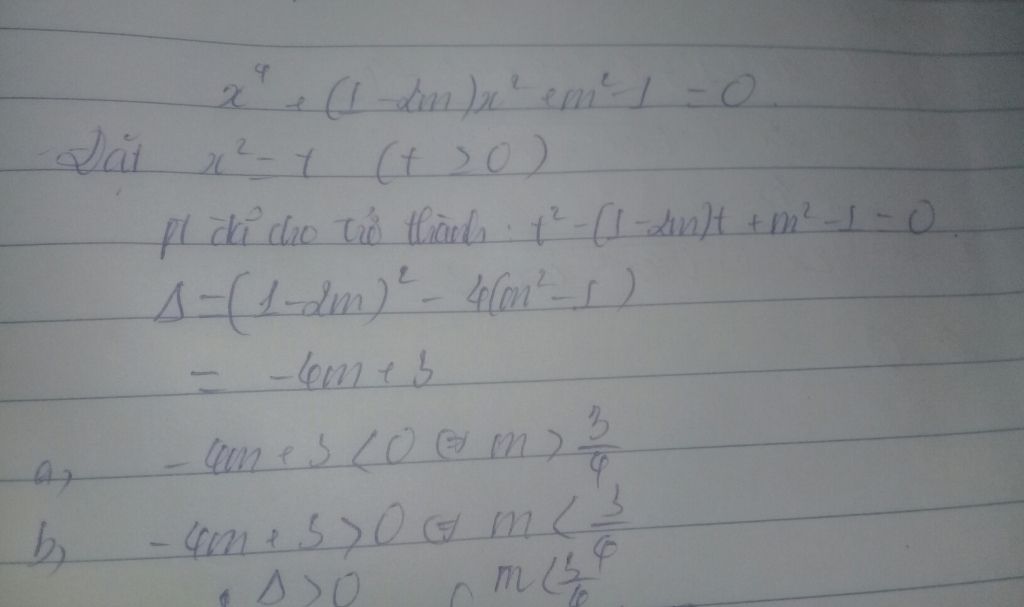 x⁴ + (1-2m)x² + m²-1 = 0
Đặt x² = t (t > 0)
pt đã cho trở thành : t² - (1-2m)t + m² - 1 = 0
Δ = (1-2m)² - 4(m² - 1)
= -4m + 3
a, -4m + 3 < 0 ⇔ m > 3/4
b, -4m + 3 > 0 ⇔ m < 3/4
Δ > 0 m < 3/4